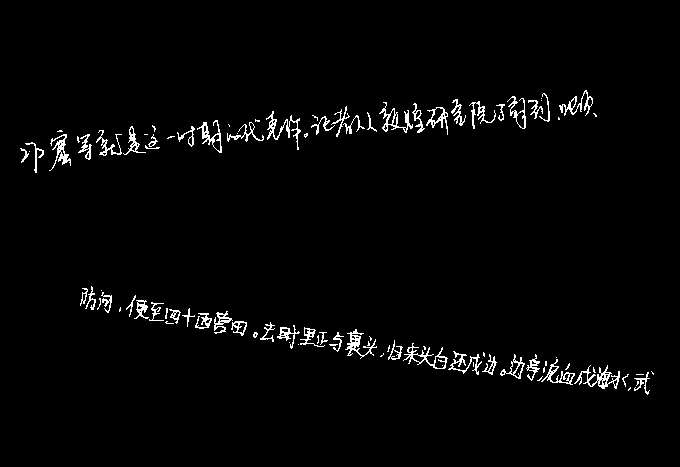 窟等就是这一时期的代表作。记者从敦煌研究院了解到,此次
防河,便至四十西营田。去时里正与裹头,归来头白还戍边。边亭流血成海水,武